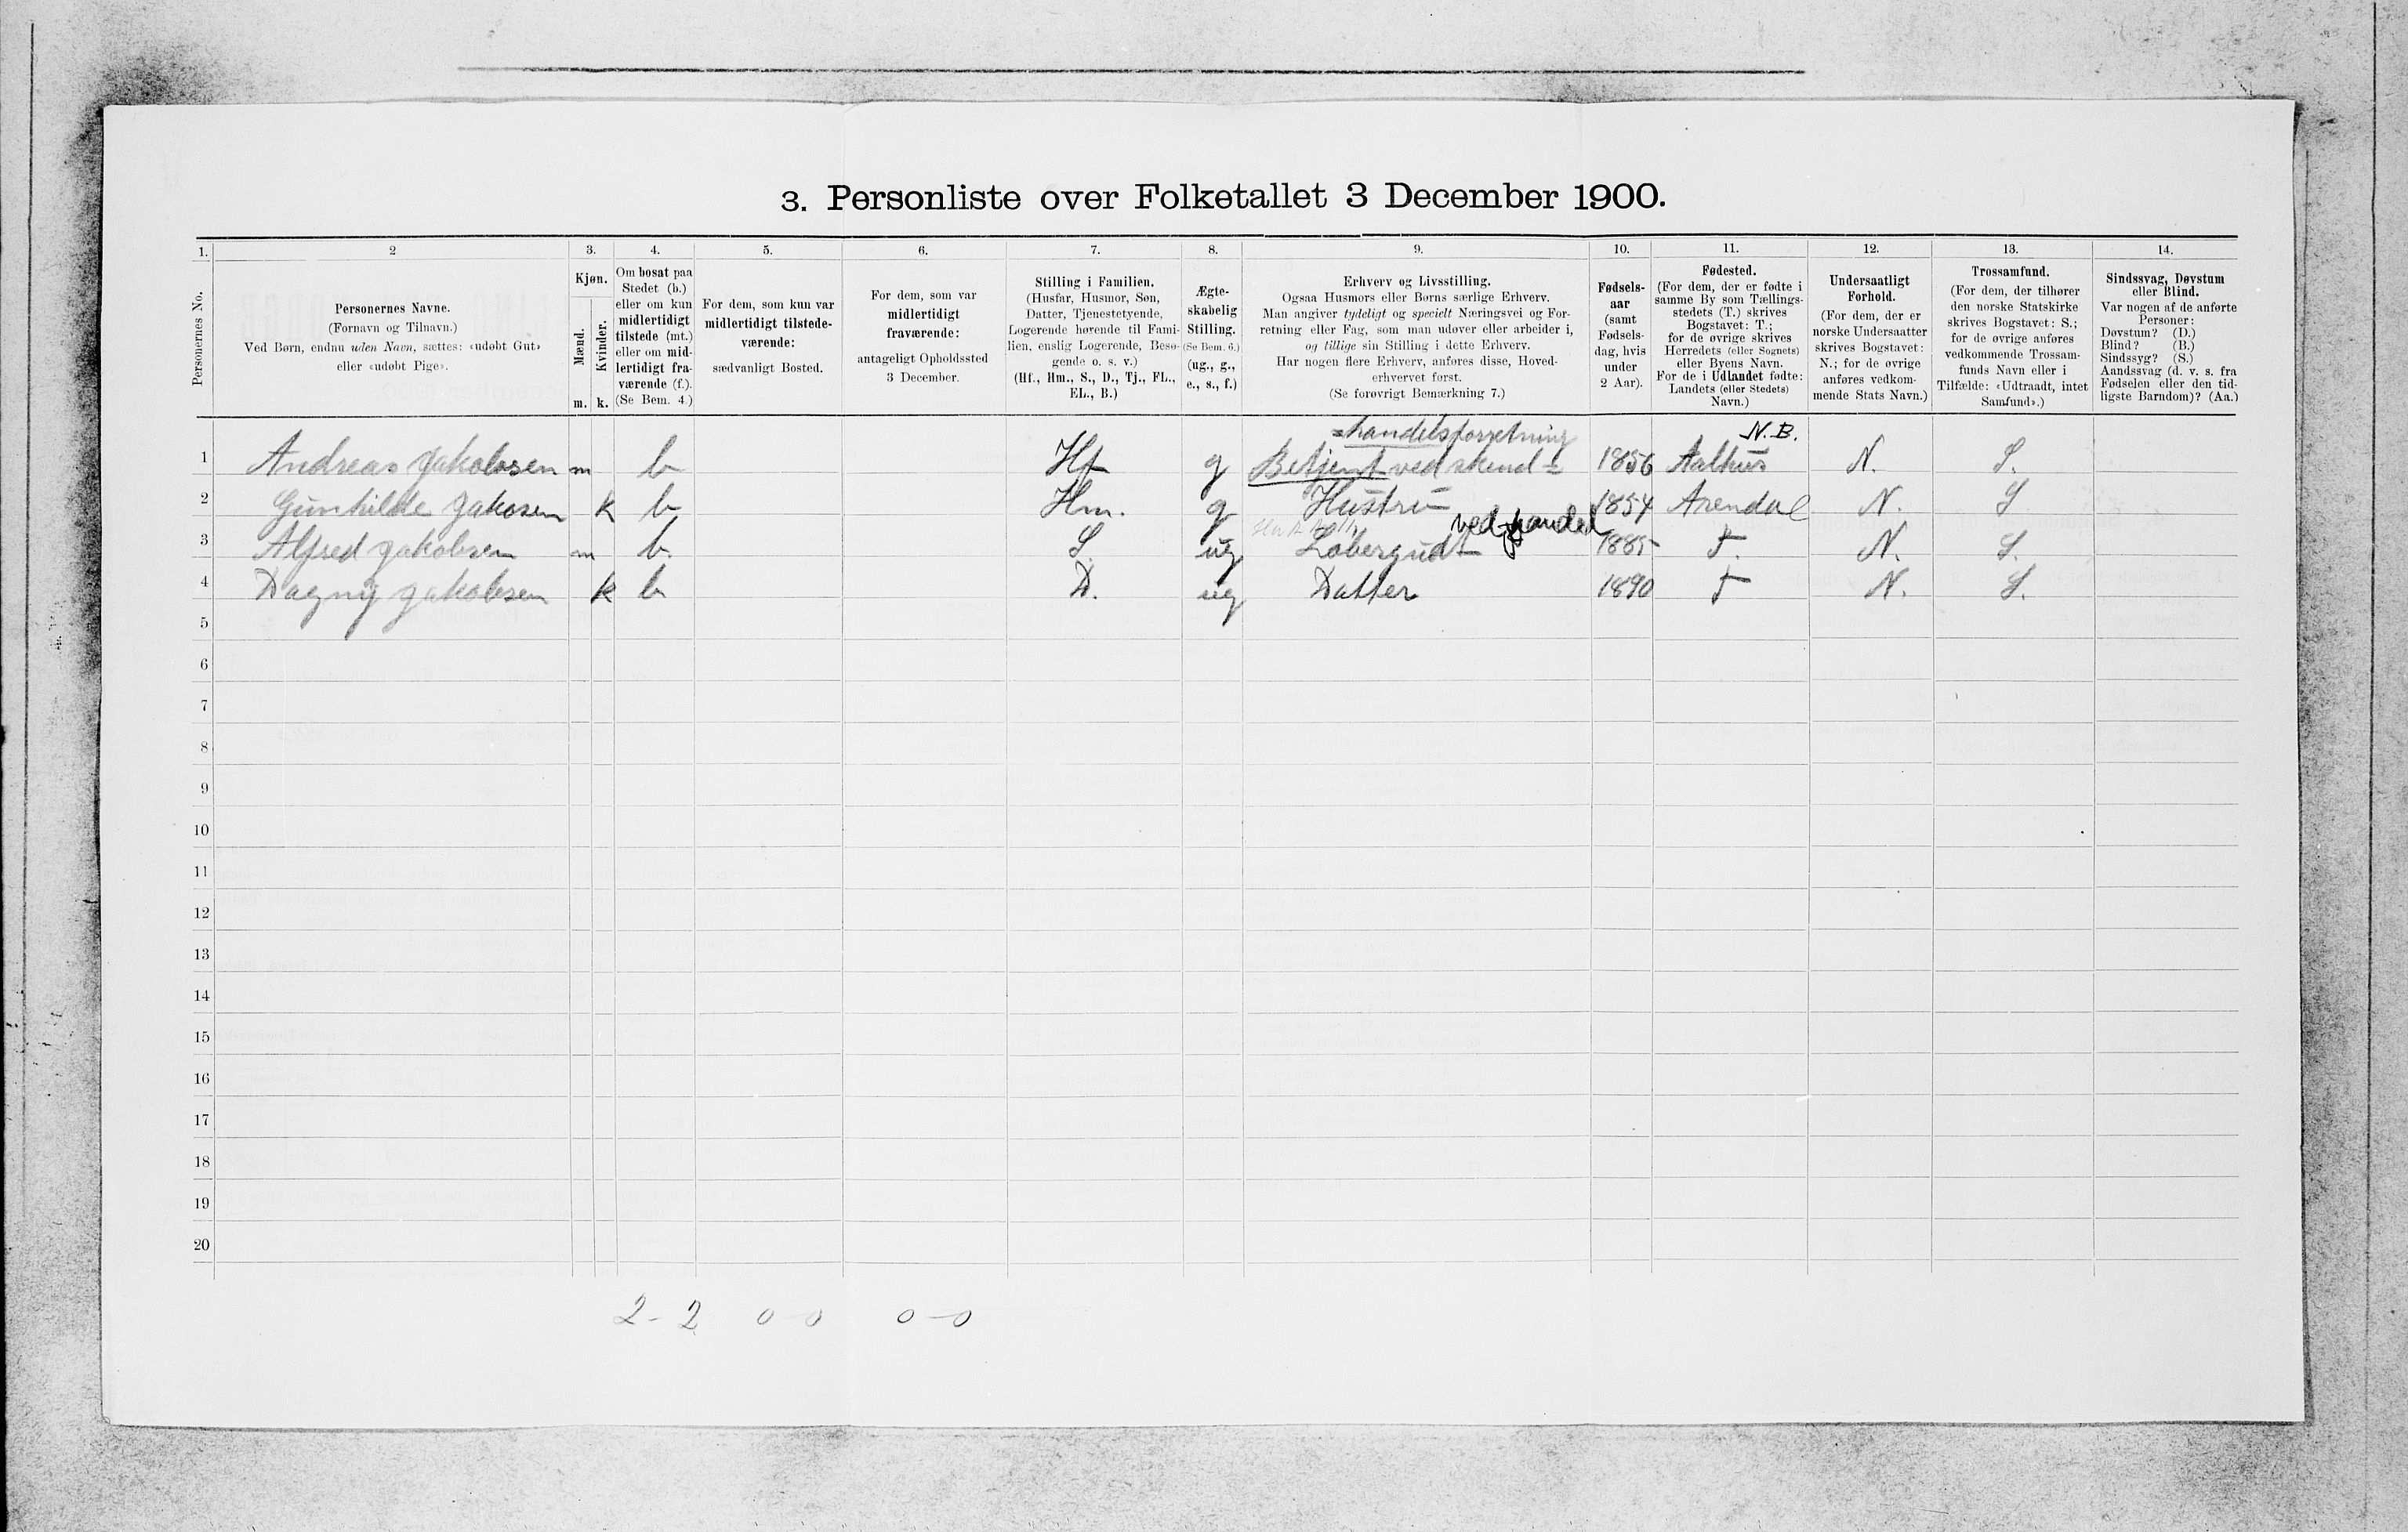 3. Personliste over Folketallet 3 December 1900.
1. 2 3. 4. 5. 6. 7. 8. 9. 10. 11. 12. 13. 14.
Personernes No.
Personernes Navne.
(Fornavn og Tilnavn.)
Ved Børn, endnu uden Navn, sættes: «udøbt Gut»
eller «udøbt Pige».
Kjøn.
Mænd.
Kvinder.
m. k.
Om bosat paa
Stedet (b.)
eller om kun
midlertidigt
tilstede (mt.)
eller om mid-
lertidigt fra-
værende (f.).
(Se Bem. 4.)
For dem, som kun var
midlertidigt tilstede-
værende:
sædvanligt Bosted.
For dem, som var
midlertidigt
fraværende:
antageligt Opholdssted
3 December.
Stilling i Familien.
(Husfar, Husmor, Søn,
Datter, Tjenestetyende,
Logerende hørende til Fami-
lien, enslig Logerende, Besø-
gende o. s. v.)
(Hf., Hm., S., D., Tj., FL.,
EL., B.)
Ægte-
skabelig
Stilling.
(Se Bem. 6.)
(ug., g.,
e., s., f.)
Erhverv og Livsstilling.
Ogsaa Husmors eller Børns særlige Erhverv.
Man angiver tydeligt og specielt Næringsvei og For-
retning eller Fag, som man udøver eller arbeider i,
og tillige sin Stilling i dette Erhverv.
Har nogen flere Erhverv, anføres disse, Hoved-
erhvervet først.
(Se forøvrigt Bemærkning 7.)
Fødsels-
aar
(samt
Fødsels-
dag, hvis
under
2 Aar).
Fødested.
(For dem, der er fødte i
samme By som Tællings-
stedets (T.) skrives
Bogstavet: T.;
for de øvrige skrives
Herredets (eller Sognets)
eller Byens Navn.
For de i Udlandet fødte:
Landets (eller Stedets)
Navn.)
Undersaatligt
Forhold.
(For dem, der er
norske Undersaatter
skrives Bogstavet:
N.; for de øvrige
anføres vedkom-
mende Stats Navn.)
Trossamfund.
(For dem, der tilhører
den norske Statskirke
skrives Bogstavet: S.;
for de øvrige anføres
vedkommende Trossam-
funds Navn eller i
Tilfælde: «Udtraadt, intet
Samfund».)
Sindssvag, Døvstum
eller Blind.
Var nogen af de anførte
Personer:
Døvstum? (D.)
Blind? (B.)
Sindssyg? (S.)
Aandssvag (d. v. s. fra
Fødselen eller den tid-
ligste Barndom)? (Aa.)
=handelsforretning N.B.
1 Andreas Jakobsen m b Hf g Betjent ved skind= 1856 Aalhus N. S.
2 Gunhilde Jakosen k b Hm. g Hustru 1854 Arendal N. S
ved handel
3 Alfred Jakobsen m b. S. ug Løbergud 1885 T. N. S.
4 Dagny Jakobsen k b D. ug Datter 1890 T N. S.
5
6
7
8
9
10
11
12
13
14
15
16
17
18
19
20
2-2 0-0 0-0